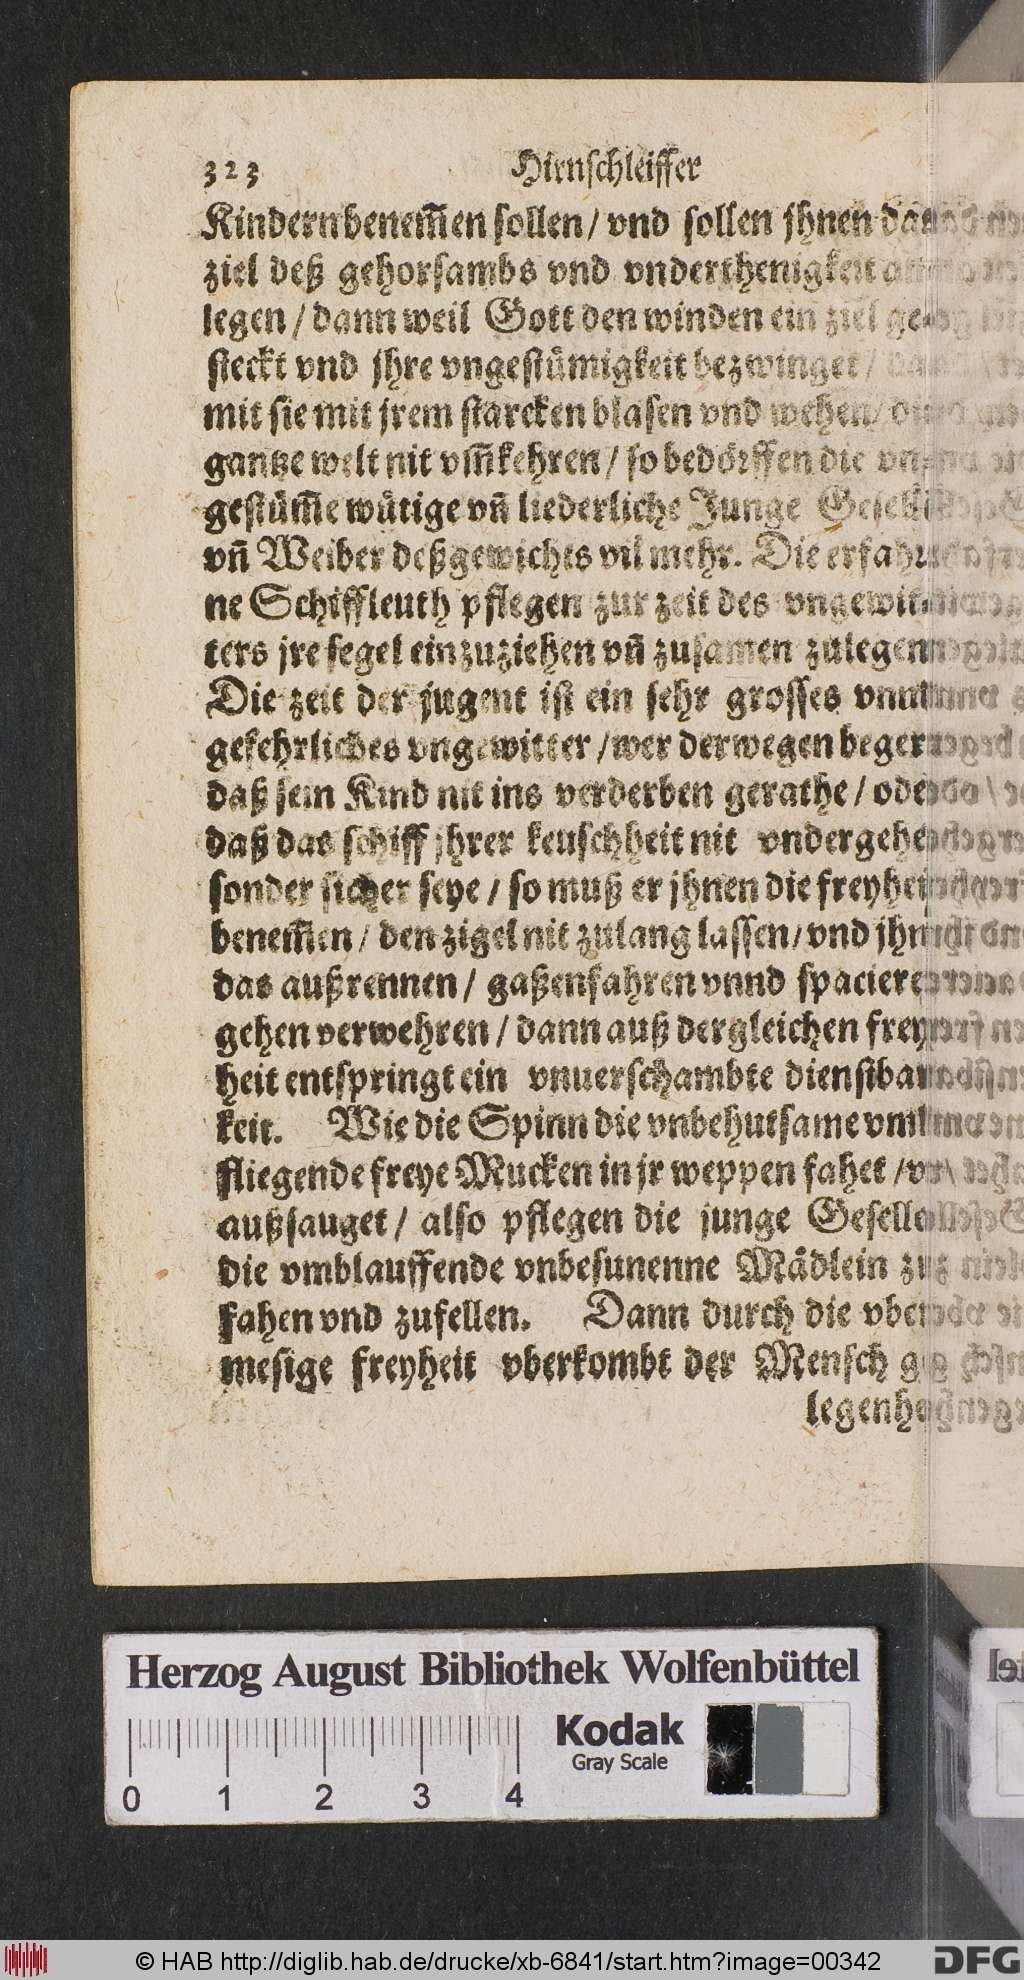 323 Hirnschleiffer
Kindern benem̃en sollen / vnd sollen jhnen
ziel deß gehorsambs vnd vnderthenigkeit
legen / dann weil Gott den winden ein ziel
steckt vnd jhre vngestümigkeit bezwinget /
mit sie mit jrem starcken blasen vnd wehen /
gantze welt nit vm̃kehren / so bedörffen die
gestüm̃e wütige vñ liederliche Junge
vñ Weiber deß gewichts vil mehr. Die erfahr
ne Schiffleuth pflegen zur zeit des vngewit
ters jre segel einzuziehen vñ zusamen zulegen
Die zeit der jugent ist ein sehr grosses vnnd
gefehrliches vngewitter / wer derwegen begert
daß sein Kind nit ins verderben gerathe / oder
daß das schiff jhrer keuschheit nit vndergehe
sonder sicher seye / so muß er jhnen die freyheit
benem̃en / den zigel nit zulang lassen / vnd jhn
das außrennen / gaßenfahren vnnd spacieren
gehen verwehren / dann auß dergleichen frey
heit entspringt ein vnuerschambte dienstbar
keit. Wie die Spinn die vnbehutsame vmb
fliegende freye Mucken in jr weppen fahet / vñ
außsauget / also pflegen die junge Gesellen
die vmblauffende vnbesunenne Mådlein zu
fahen vnd zufellen. Dann durch die vber
mesige freyheit vberkombt der Mensch ge
legenh
Herzog August Bibliothek Wolfenbüttel
Kodak
Gray Scale
0 1 2 3 4
© HAB http://diglib.hab.de/drucke/xb-6841/start.htm?image=00342
DFG